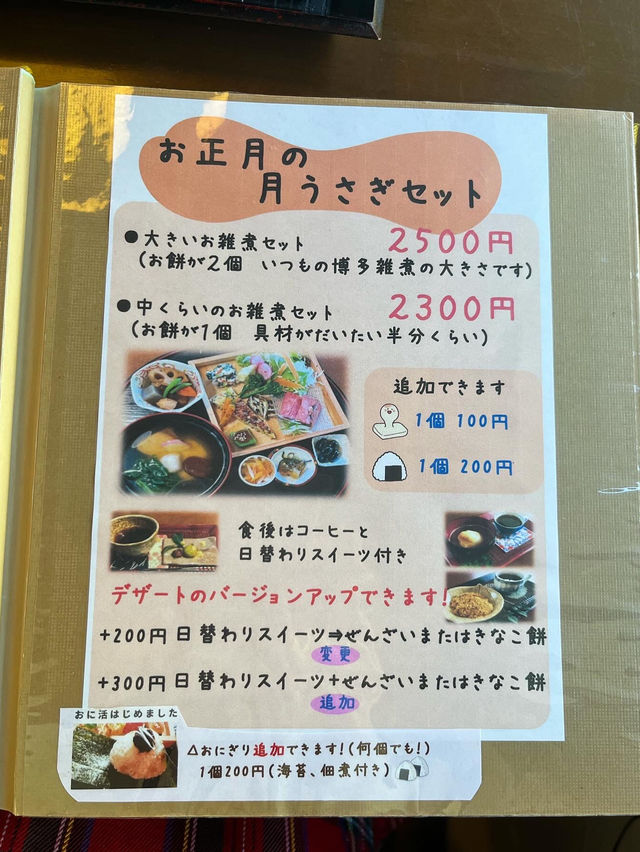 お正月の
月うさぎセット
●大きいお雑煮セット 2500円
(お餅が2個 いつもの博多雑煮の大きさです)
●中くらいのお雑煮セット 2300円
(お餅が1個 具材がだいたい半分くらい)
追加できます
1個 100円
1個 200円
食後はコーヒーと
日替わりスイーツ付き
デザートのバージョンアップできます!
+200円 日替わりスイーツ⇒ぜんざいまたはきなこ餅
変更
+300円 日替わりスイーツ+ぜんざいまたはきなこ餅
追加
おに活はじめました
△おにぎり追加できます!(何個でも!)
1個200円(海苔、佃煮付き)